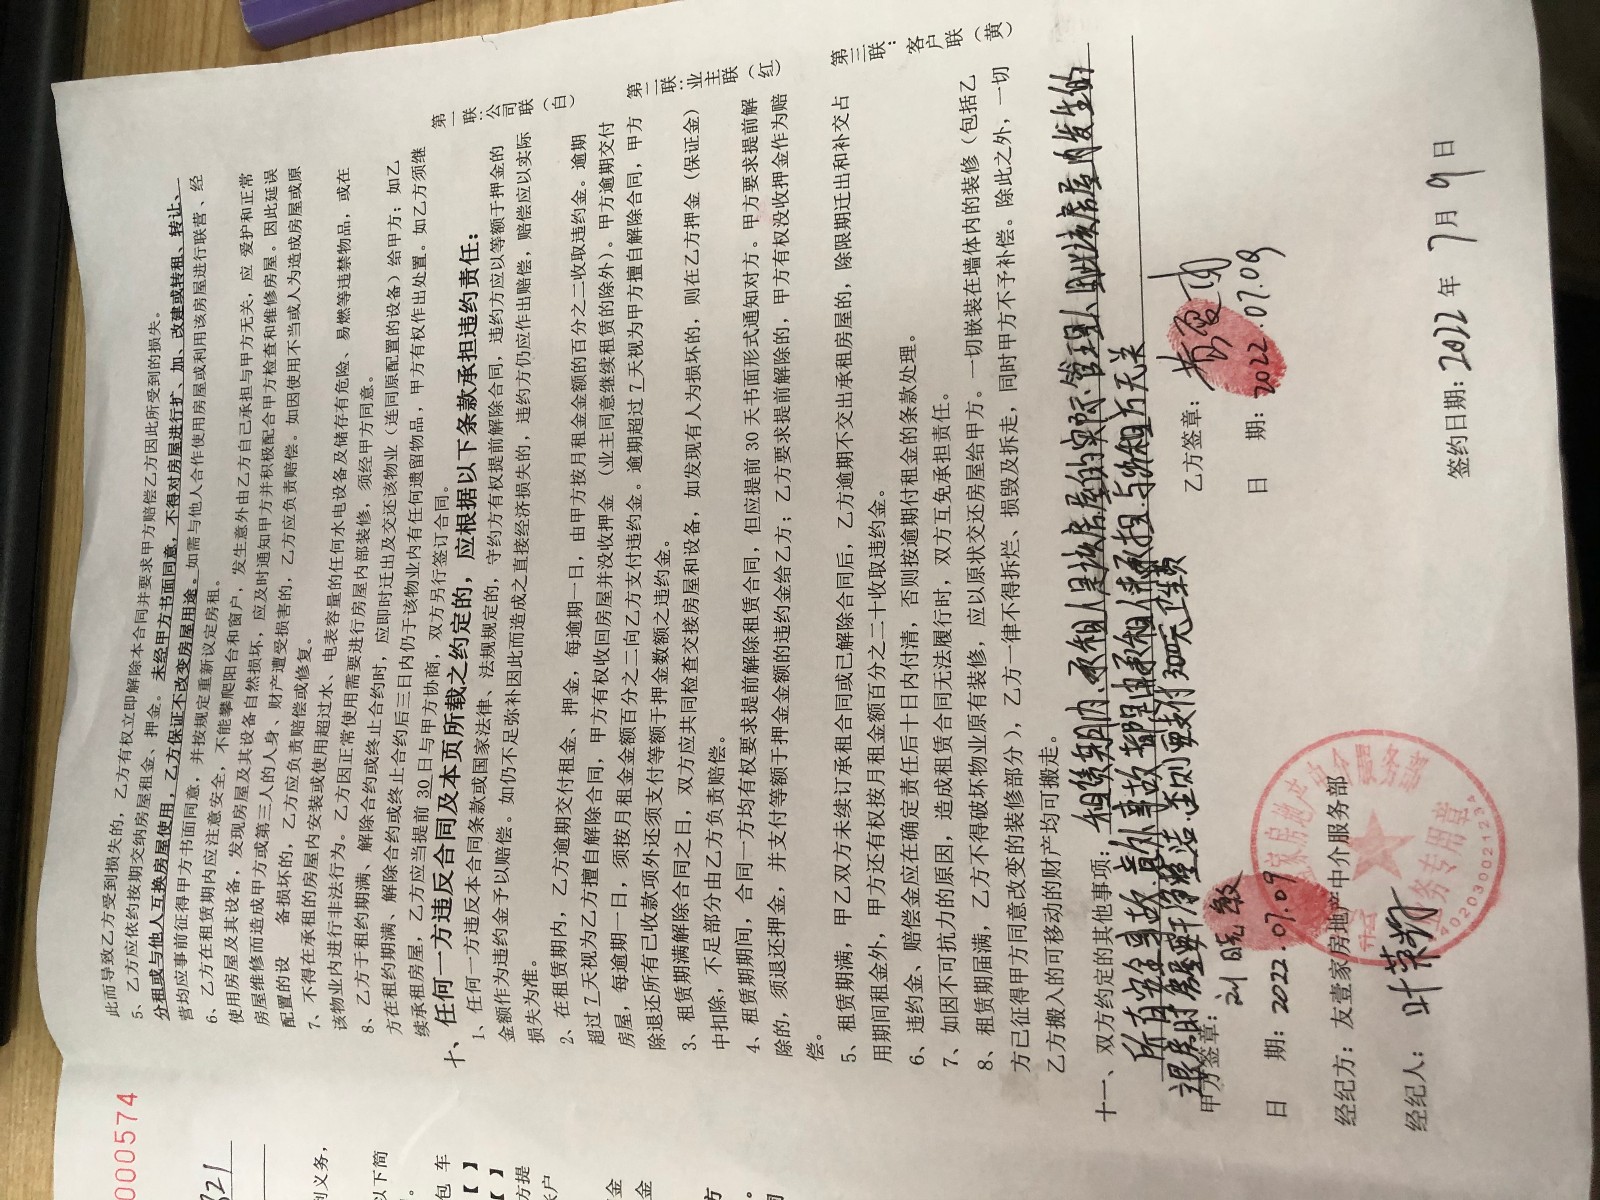 此而导致乙方受到损失的，乙方有权立即解除本合同并要求甲方赔偿乙方因此所受到的损失。
5、乙方应依约按期交纳房屋租金、押金。未经甲方书面同意，不得对房屋进行扩、加、改建或转租、转让、
分租或与他人互换房屋使用，乙方保证不改变房屋用途。如需与他人合作使用房屋或利用该房屋进行联营、经
营均应事前征得甲方书面同意，并按规定重新议定房租。
6、乙方在租赁期内应注意安全，不能攀爬阳台和窗户，发生意外由乙方自己承担与甲方无关，应 爱护和正常
使用房屋及其设备，发现房屋及其设备自然损坏，应及时通知甲方并积极配合甲方检查和维修房屋。因此延误
房屋维修而造成甲方或第三人的人身、财产遭受损害的，乙方应负责赔偿。如因使用不当或人为造成房屋或原
配置的设 备损坏的，乙方应负责赔偿或修复。
7、不得在承租的房屋内安装或使用超过水、电表容量的任何水电设备及储存有危险、易燃等违禁物品，或在
该物业内进行非法行为。乙方因正常使用需要进行房屋内部装修，须经甲方同意。
8、乙方于租约期满、解除合约或终止合约时，应即时迁出及交还该物业（连同原配置的设备）给甲方；如乙
方在租约期满、解除合约或终止合约后三日内仍于该物业内有任何遗留物品，甲方有权作出处置。如乙方须继
续承租房屋，乙方应当提前 30 日与甲方协商，双方另行签订合同。
十、任何一方违反合同及本页所载之约定的，应根据以下条款承担违约责任：
1、任何一方违反本合同条款或国家法律、法规规定的，守约方有权提前解除合同，违约方应以等额于押金的
金额作为违约金予以赔偿。如仍不足弥补因此而造成之直接经济损失的，违约方仍应作出赔偿，赔偿应以实际
损失为准。
2、在租赁期内，乙方逾期交付租金、押金，每逾期一日，由甲方按月租金金额的百分之二收取违约金。逾期
超过 7 天视为乙方擅自解除合同，甲方有权收回房屋并没收押金（业主同意继续租赁的除外）。甲方逾期交付
房屋，每逾期一日，须按月租金金额百分之二向乙方支付违约金。逾期超过 7 天视为甲方擅自解除合同，甲方
除退还所有已收款项外还须支付等额于押金数额之违约金。
3、租赁期满解除合同之日，双方应共同检查交接房屋和设备，如发现有人为损坏的，则在乙方押金（保证金）
中扣除，不足部分由乙方负责赔偿。
4、租赁期期间，合同一方均有权要求提前解除租赁合同，但应提前 30 天书面形式通知对方。甲方要求提前解
除的，须退还押金，并支付等额于押金金额的违约金给乙方；乙方要求提前解除的，甲方有权没收押金作为赔
偿。
5、租赁期满，甲乙双方未续订承租合同或已解除合同后，乙方逾期不交出承租房屋的，除限期迁出和补交占
用期间租金外，甲方还有权按月租金额百分之二十收取违约金。
6、违约金、赔偿金应在确定责任后十日内付清，否则按逾期付租金的条款处理。
7、如因不可抗力的原因，造成租赁合同无法履行时，双方互免承担责任。
8、租赁期届满，乙方不得破坏物业原有装修，应以原状交还房屋给甲方。一切嵌装在墙体内的装修（包括乙
方已征得甲方同意改变的装修部分），乙方一律不得拆烂、损毁及拆走，同时甲方不予补偿。除此之外，一切
乙方搬入的可移动的财产均可搬走。
十一、双方约定的其他事项：租赁期内，承租人是该房屋的实际管理人，即该房屋内发生的
所有安全事故、意外事故都由承租人承担，与出租方无关
退房时房屋要干净整洁，否则要支付300元卫生费
甲方签章：刘晓敏
乙方签章：
日 期：2022.07.09
日 期：2022.07.09
经纪方：友壹家房地产中介服务部
经纪人：叶荣彬
签约日期：2022 年 7 月 9 日
第一联：公司联（白）
第二联：业主联（红）
第三联：客户联（黄）
业务专用章
000574
321